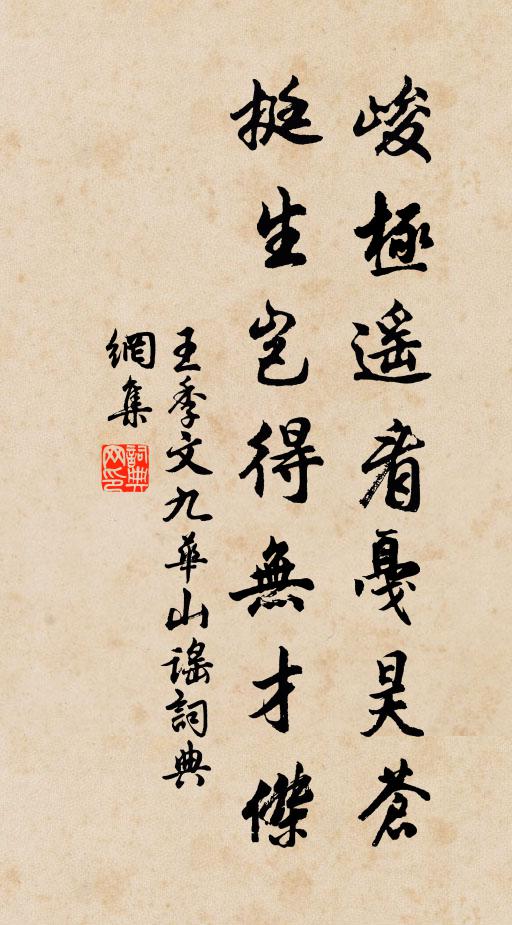 峻極遥看戛昊蒼
挺生岂得無才傑
王季文九華山谣詞典
網集
詞典網印